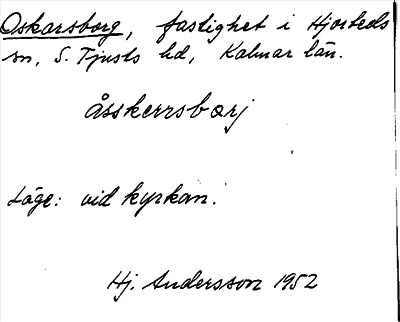 Oskarsborg, fastighet i Hjorteds
sn, S. Tjusts hd, Kalmar län.
åsskerrsborj
Läge: vid kyrkan.
Hj. Andersson 1952